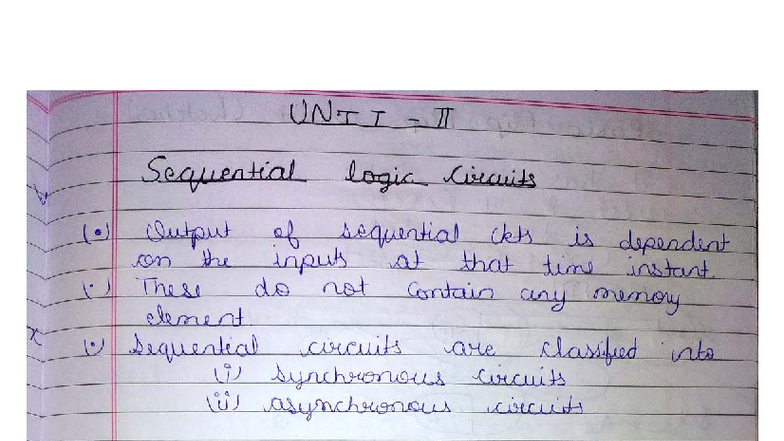 UNIT - II
Sequential logic Circuits
(•) Output of sequential ckts is dependent
on the inputs at that time instant.
(•) These do not contain any memory
element.
(•) Sequential circuits are classified into
(i) synchronous circuits
(ii) asynchronous circuits